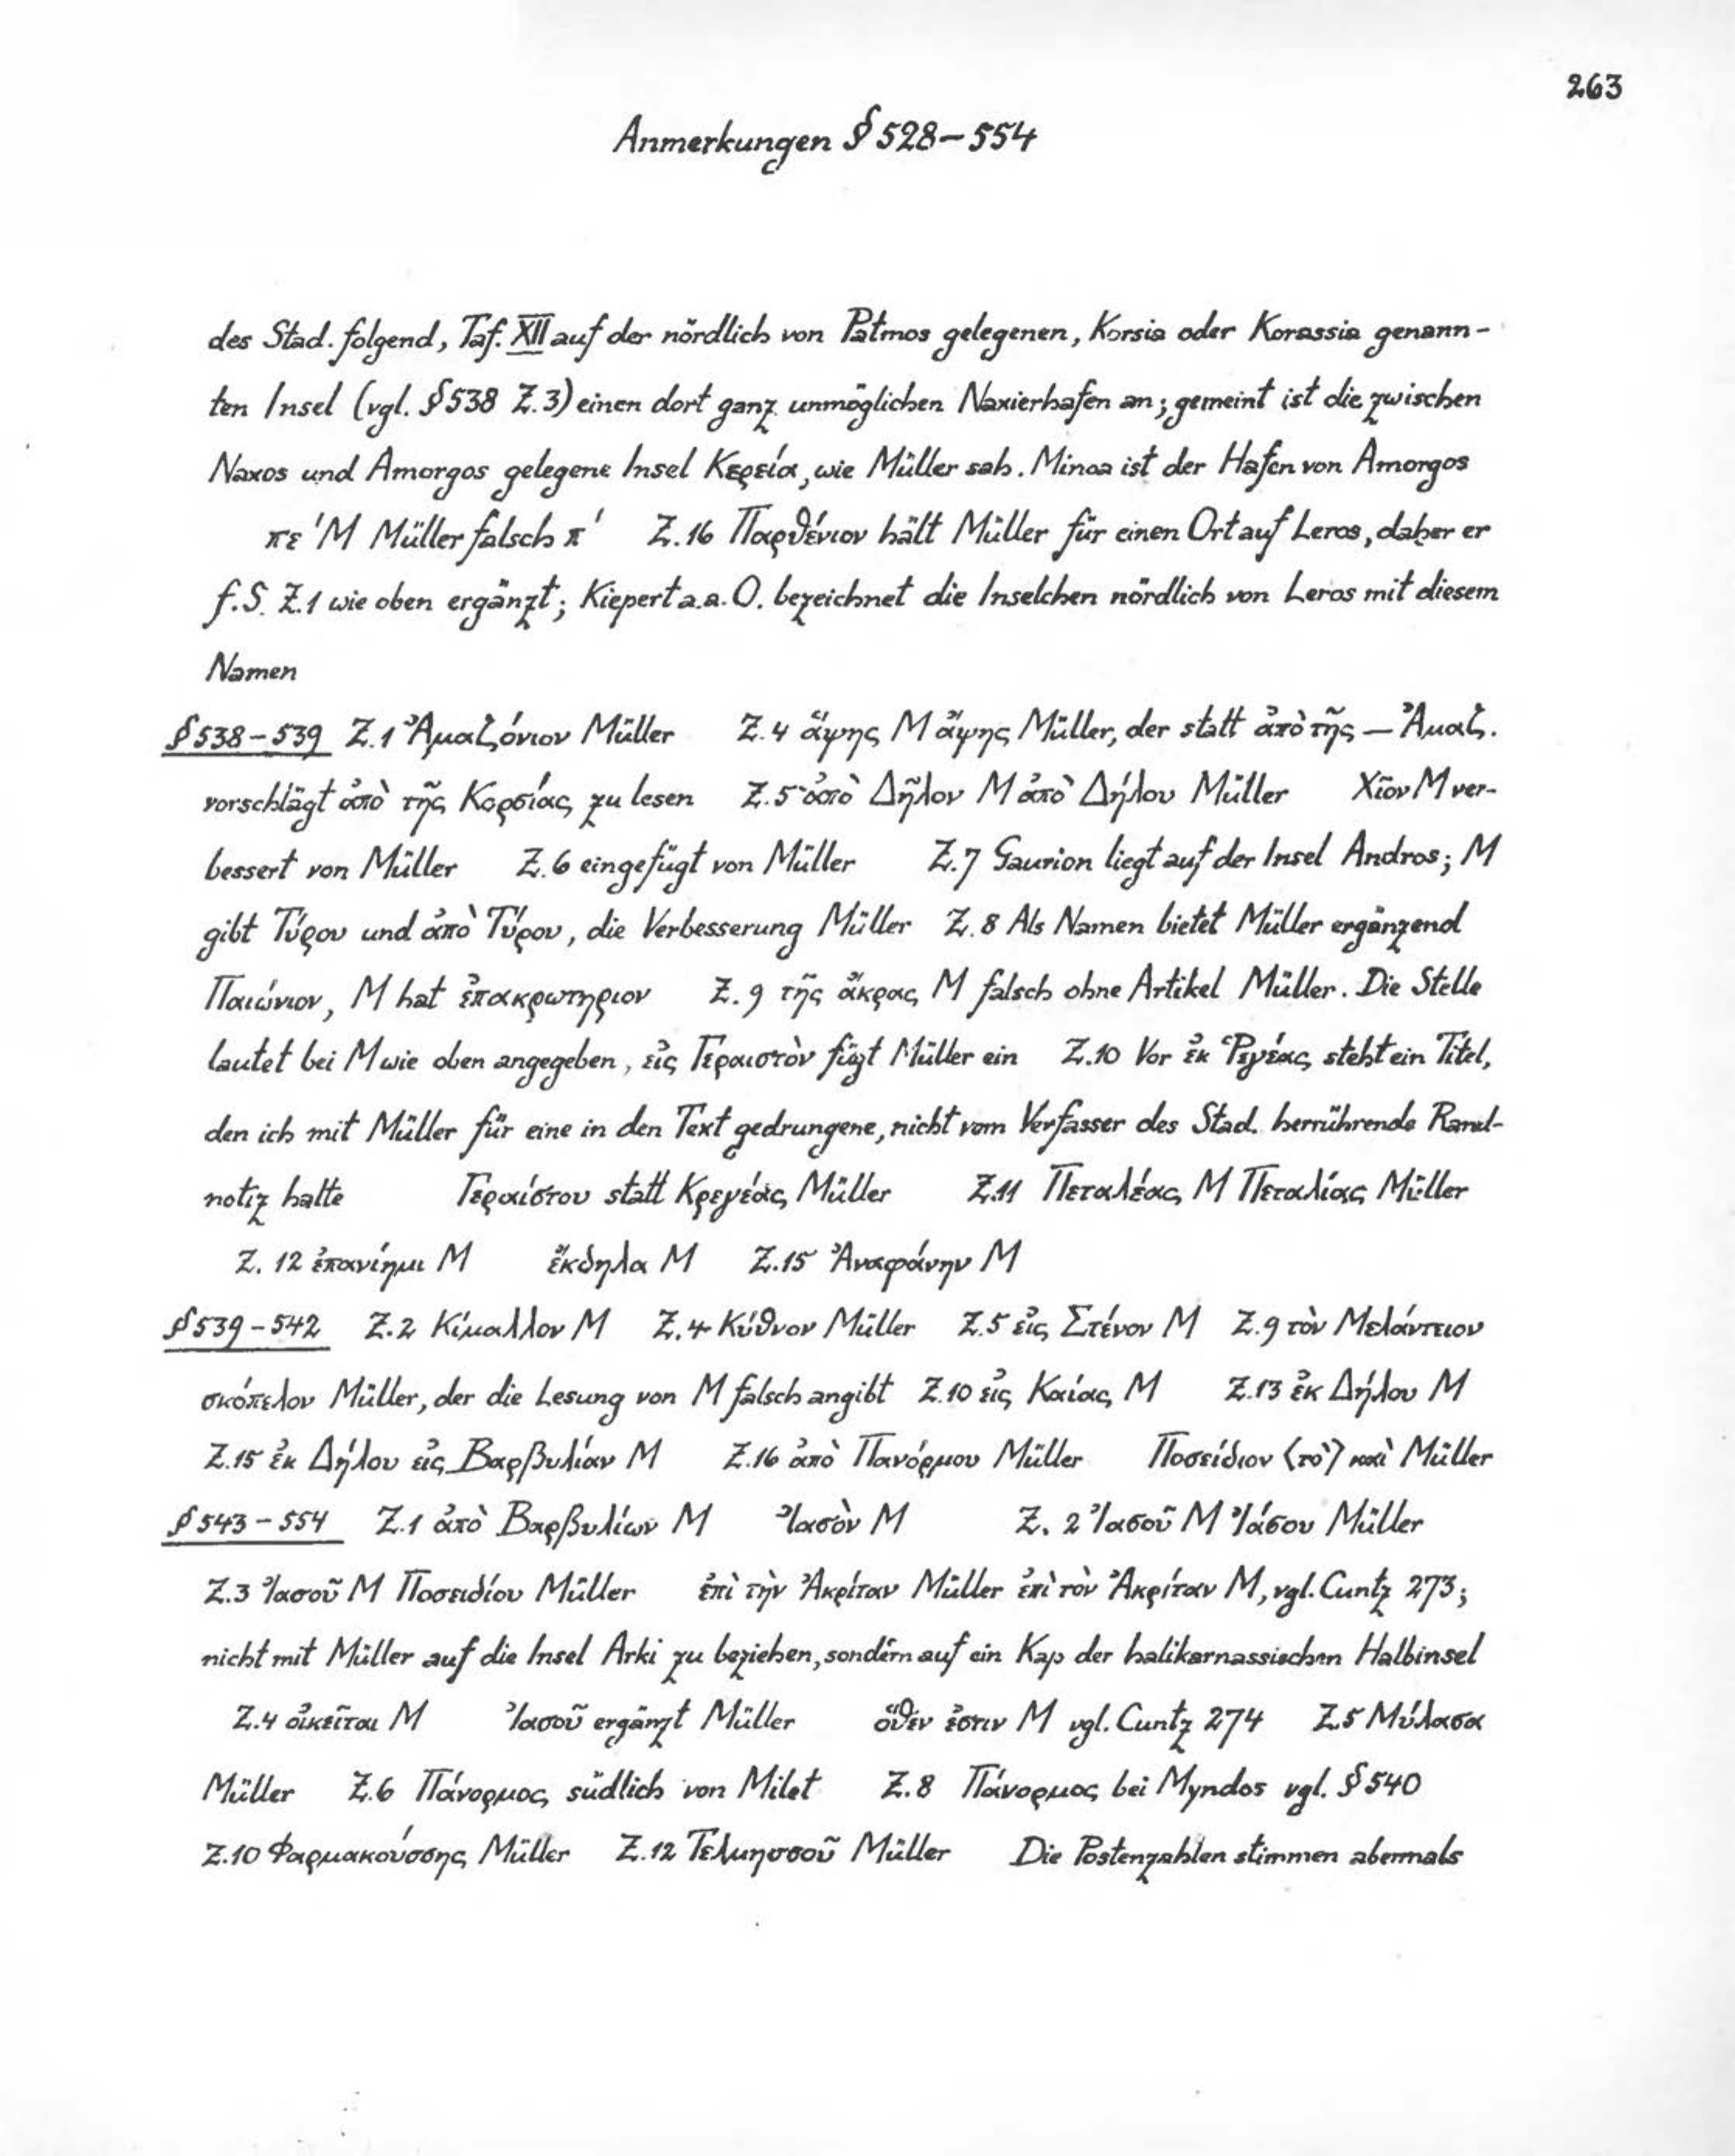 263
Anmerkungen § 528-554
des Stad. folgend, Taf. XII auf der nördlich von Patmos gelegenen, Korsia oder Korassia genann-
ten Insel (vgl. § 538 Z. 3) einen dort ganz unmöglichen Naxierhafen an; gemeint ist die zwischen
Naxos und Amorgos gelegene Insel Κερεία, wie Müller sah. Minoa ist der Hafen von Amorgos
πε' M Müller falsch π' Z. 16 Παρθένιον hält Müller für einen Ort auf Leros, daher er
f. S. Z. 1 wie oben ergänzt; Kiepert a.a.O. bezeichnet die Inselchen nördlich von Leros mit diesem
Namen
§ 538-539 Z. 1 Ἀμαζόνιον Müller Z. 4 ἅψης M ἄψης Müller, der statt ἀπὸ τῆς — Ἀμαζ.
vorschlägt ἀπὸ τῆς Κορσίας zu lesen Z. 5 ἀπὸ Δῆλον M ἀπὸ Δήλου Müller Χῖον M ver-
bessert von Müller Z. 6 eingefügt von Müller Z. 7 Gaurion liegt auf der Insel Andros; M
gibt Τύρου und ἀπὸ Τύρου, die Verbesserung Müller Z. 8 Als Namen bietet Müller ergänzend
Παιώνιον, M hat ἐπακρωτηριον Z. 9 τῆς ἄκρας M falsch ohne Artikel Müller. Die Stelle
lautet bei M wie oben angegeben, εἰς Γεραιστὸν fügt Müller ein Z. 10 Vor ἐκ steht ein Titel,
den ich mit Müller für eine in den Text gedrungene, nicht vom Verfasser des Stad. herrührende Rand-
notiz halte Γεραίστου statt Κρεγέας Müller Z. 11 Πεταλέας M Πεταλίας Müller
Z. 12 ἐπανίημι M ἔκδηλα M Z. 15 Ἀναφάνην M
§ 539-542 Z. 2 Κίμαλλον M Z. 4 Κύθνον Müller Z. 5 εἰς Στένον M Z. 9 τὸν Μελάντειον
σκόπελον Müller, der die Lesung von M falsch angibt Z. 10 εἰς Καίας M Z. 13 ἐκ Δήλου M
Z. 15 ἐκ Δήλου εἰς Βαρβυλίαν M Z. 16 ἀπὸ Πανόρμου Müller Ποσείδιον ⟨τὸ⟩ καὶ Müller
§ 543-554 Z. 1 ἀπὸ Βαρβυλίων M Ἰασὸν M Z. 2 Ἰασοῦ M Ἰάσου Müller
Z. 3 Ἰασοῦ M Ποσειδίου Müller ἐπὶ τὴν Ἀκρίταν Müller ἐπὶ τὸν Ἀκρίταν M, vgl. Cuntz 273;
nicht mit Müller auf die Insel Arki zu beziehen, sondern auf ein Kap der halikarnassischen Halbinsel
Z. 4 οἰκεῖται M Ἰασοῦ ergänzt Müller ὅθεν ἐστιν M vgl. Cuntz 274 Z. 5 Μύλασα
Müller Z. 6 Πάνορμος südlich von Milet Z. 8 Πάνορμος bei Myndos vgl. § 540
Z. 10 Φαρμακούσσης Müller Z. 12 Τελμησσοῦ Müller Die Postenzahlen stimmen abermals